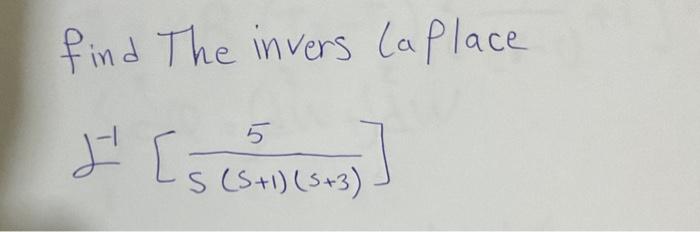 find The invers Laplace
L⁻¹ [ 5 / S (S+1) (S+3) ]